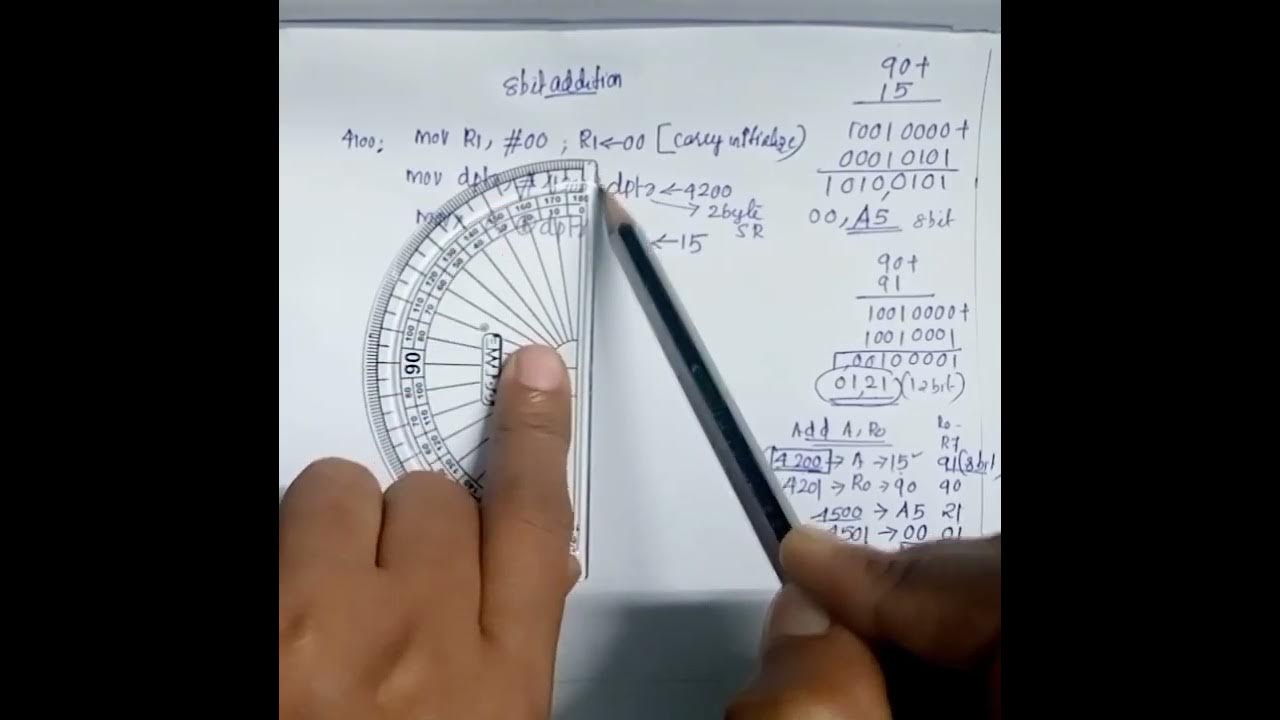 8bit addition
4100: mov R1, #00 ; R1←00 [carry initialize)
mov dptr, # dptr ←4200
→ 2byte
SR
movx @dptr ←15
90+
15
10010000+
00010101
1010,0101
00, A5 8bit
90+
91
10010000+
10010001
00100001
01,21 (12bit)
Add A, R0
R0-
R7
4200 → A → 15 91(8bit
4201 → R0 → 90 90
4500 → A5 21
4501 → 00 01
90